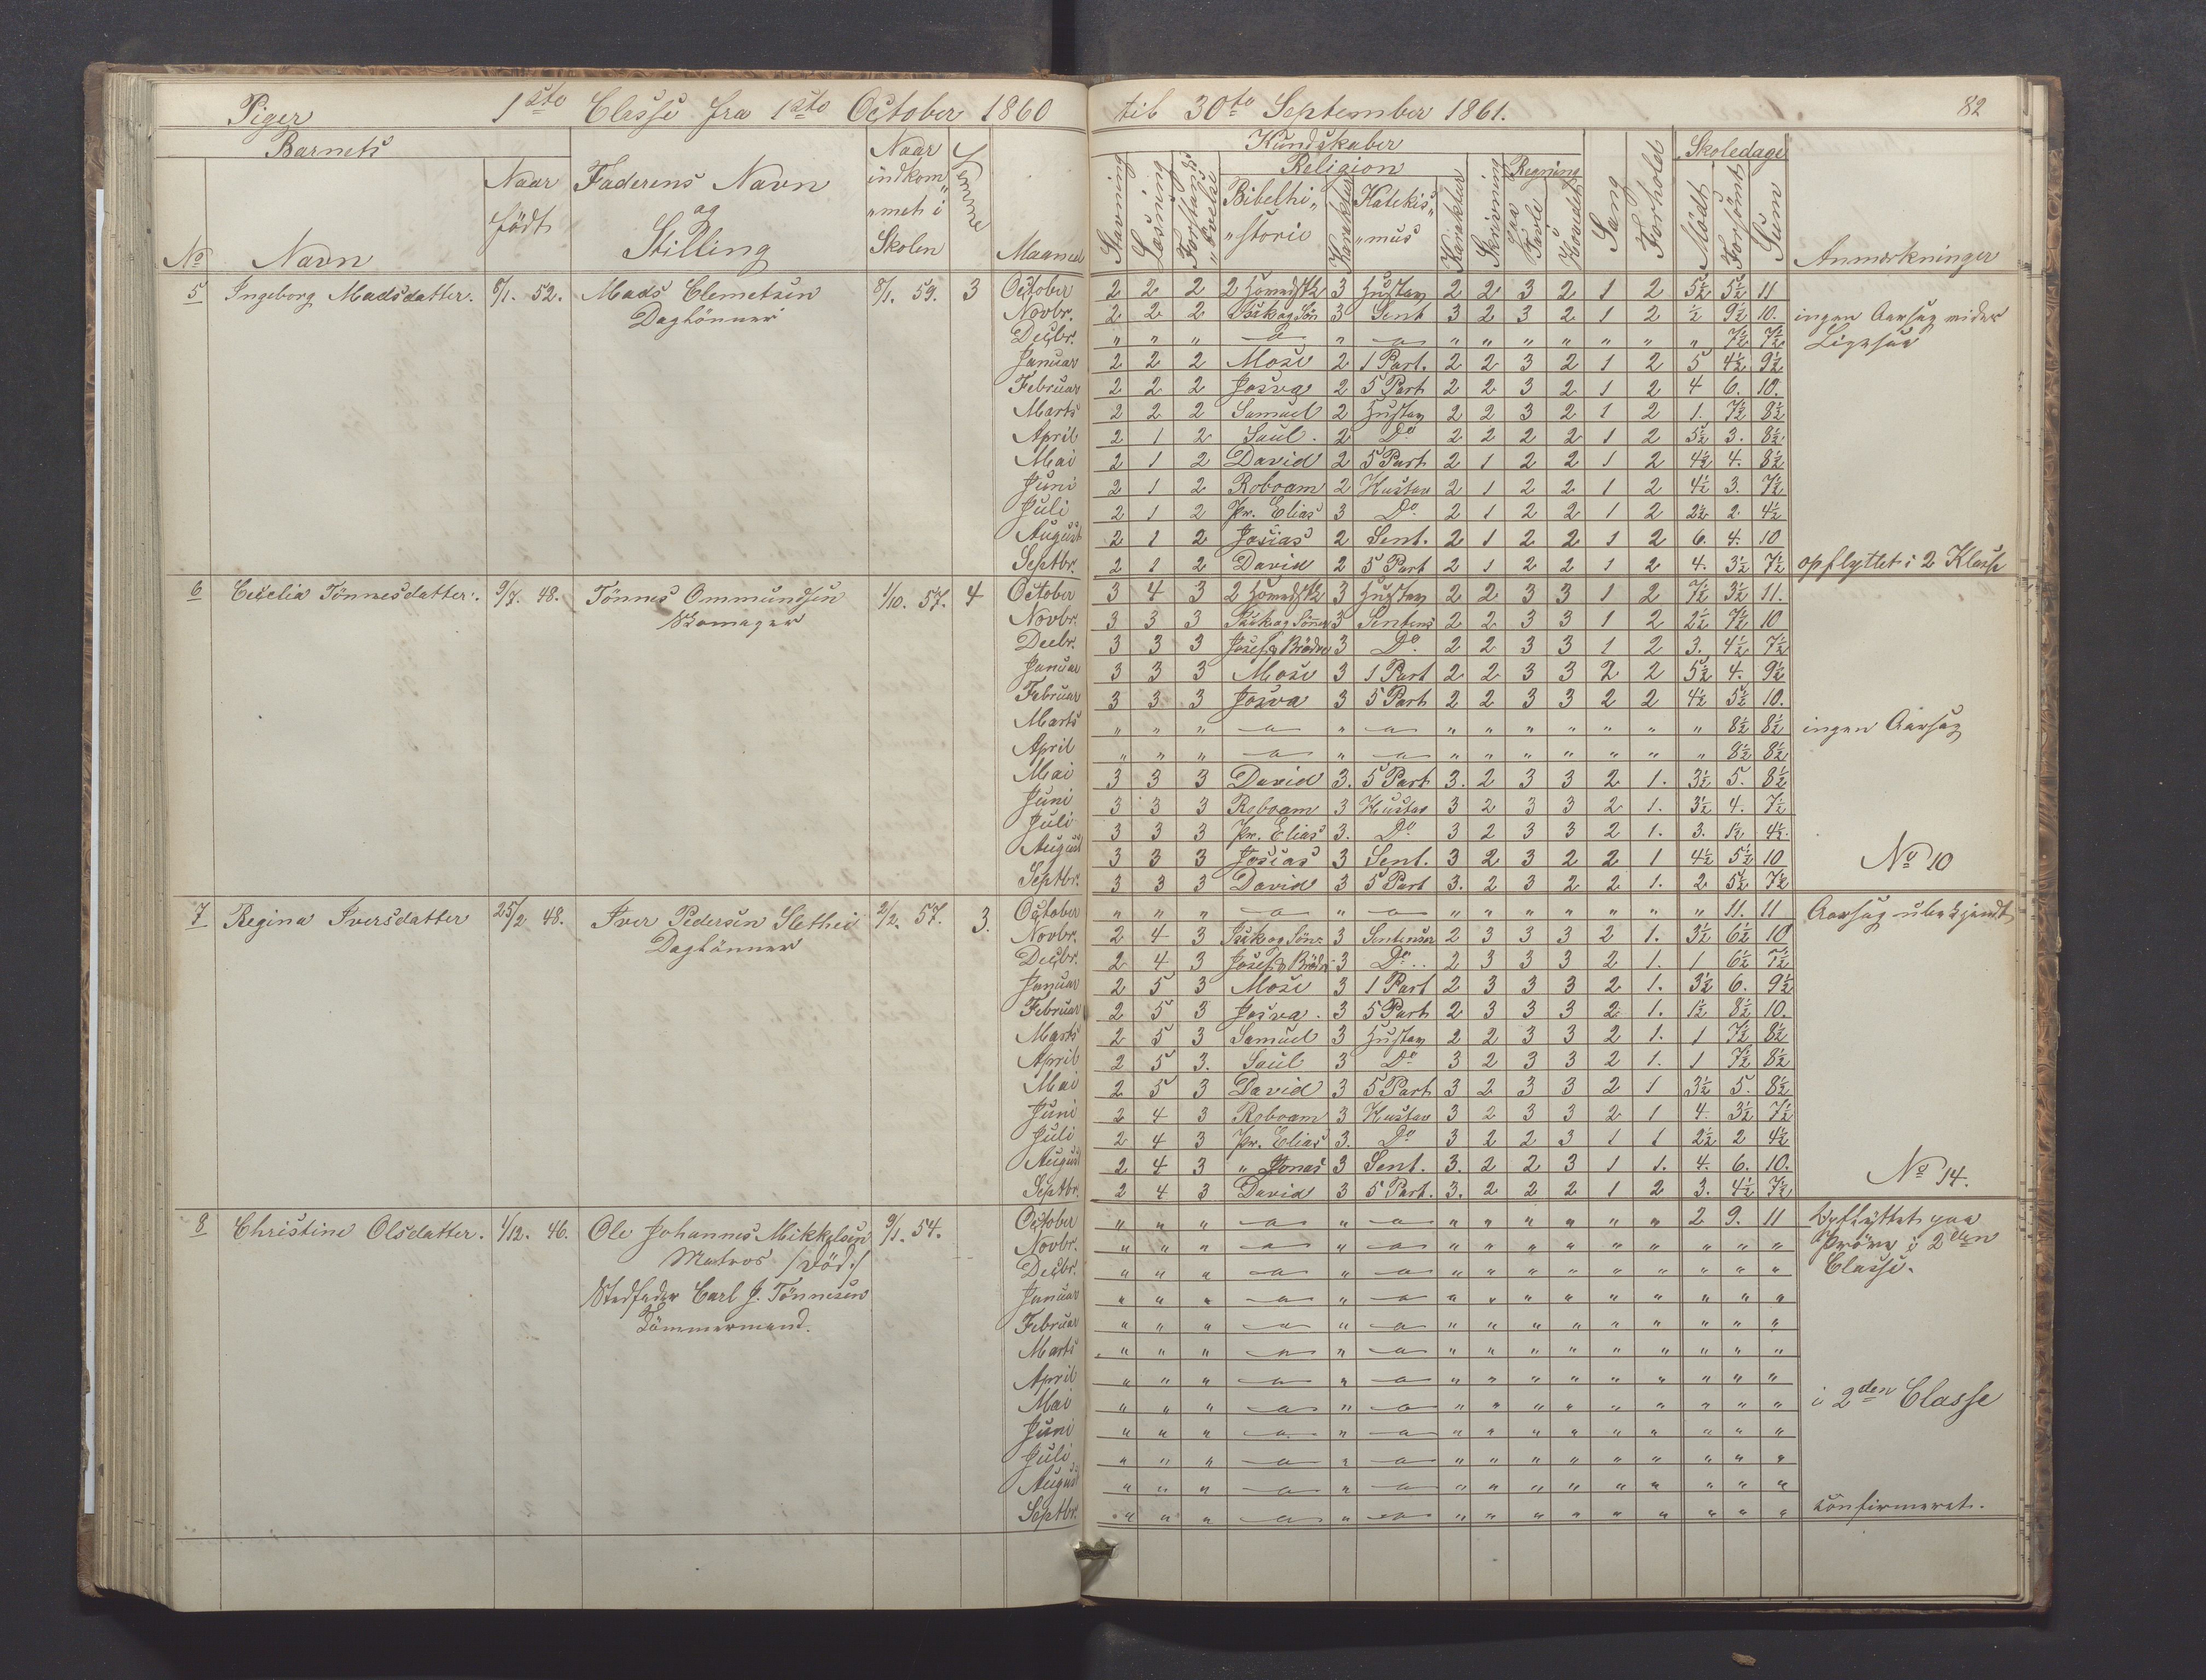 Piger 1ste Classe fra 1ste October 1860 til 30te September 1861. 82
Barnets Kundskaber Skoledage
No Navn Naar født Faderens Navn og Stilling Naar indkom„ „met i Skolen Nemme Maaned Stavning Læsning Forstands„ „øvelse Religion Bibelhi„ „storie Karakter Katekis„ „mus Karakter Skrivning Regning paa Tavle Hovedet Sang Forhold Mødt Forsømt Sum Anmærkninger
5 Ingeborg Madsdatter. 8/1. 52. Mads Clemetsen 8/1. 59. 3 October 2 2 2 2 Hovedstk 3 Hustav 2 2 3 2 1 2 5½ 5½ 11
Daglönner Novbr. 2 2 2 Isak og Sön 3 Sent 3 2 3 2 1 2 ½ 9½ 10. ingen Aarsag
Decbr. „ „ „ — „ — „ „ „ „ „ „ „ 7½ 7½ Ligesaa
Januar 2 2 2 Mose 2 1 Part. 2 2 3 2 1 2 5 4½ 9½
Februar 2 2 2 Josva 2 5 Part 2 2 3 2 1 2 4 6. 10.
Marts 2 2 2 Samuel 2 Hustav 2 2 3 2 1 2 1. 7½ 8½
April 2 1 2 Saul. 2 Do 2 2 2 2 1 2 5½ 3. 8½
Mai 2 1 2 David 2 5 Part 2 1 2 2 1 2 4½ 4. 8½
Juni 2 1 2 Roboam 2 Hustav 2 1 2 2 1 2 4½ 3. 7½
Juli 2 1 2 Pr. Elias 3 Do. 2 1 2 2 1 2 2½ 2. 4½
August 2 1 2 Josias 2 Sent. 2 1 2 2 1 2 6. 4. 10
Septbr. 2 1 2 David 2 5 Part 2 1 2 2 1 2 4. 3½ 7½ opflyttet i 2 Klasse
6 Cecelia Tönnesdatter. 9/7. 48. Tönnes Ommundsen 1/10. 57. 4 October 3 4 3 2 Hovedstk 3 Hustav 2 2 3 3 1 2 7½ 3½ 11.
Skomager Novbr. 3 3 3 Isak og Söner 3 Sentens 2 2 3 3 1 2 2½ 7½ 10
Decbr. 3 3 3 Josef & Brödre 3 Do. 2 2 3 3 1 2 3. 4½ 7½
Januar 3 3 3 Mose 3 1 Part 2 2 3 3 2 2 5½ 4. 9½
Februar 3 3 3 Josva 3 5 Part 2 2 3 3 2 2 4½ 5½ 10.
Marts „ „ „ — „ — „ „ „ „ „ „ „ 8½ 8½ ingen Aarsag
April „ „ „ — „ — „ „ „ „ „ „ „ 8½ 8½
Mai 3 3 3 David 3. 5 Part 3. 2 3 3 2 1. 3½ 5. 8½
Juni 3 3 3 Roboam 3 Hustav 3 2 3 3 2 1. 3½ 4. 7½
Juli 3 3 3 Pr. Elias 3. Do 3 2 3 3 2 1. 3. 1½ 4½.
August 3 3 3 Josias 3 Sent. 3 2 3 2 2 1 4½ 5½ 10 No 10
Septbr. 3 3 3 David 3 5 Part 3. 2 3 2 2 1. 2 5½ 7½
7 Regina Iversdatter 25/2 48. Iver Pedersen Slethei 2/2. 57. 3. October „ „ „ — „ — „ „ „ „ „ „ „ 11. 11 Aarsag ubekjendt
Daglönner Novbr. 2 4 3 Isak og Sön. 3 Sentenser 2 3 3 3 2 1. 3½ 6½ 10
Decbr. 2 4 3 Josef & Brödr 3 Do.. 2 3 3 3 2 1. 1 6½ 7½
Januar 2 5 3 Mose 3 1 Part 2 3 3 3 2 1. 3½ 6. 9½
Februar 2 5 3 Josva. 3 5 Part 2 3 3 3 2 1. 1½ 8½ 10.
Marts 2 5 3 Samuel 3 Hustav 2 2 3 3 2 1. 1 7½ 8½
April 2 5 3. Saul 3 Do 3 2 3 3 2 1. 1 7½ 8½
Mai 2 5 3 David 3 5 Part 3 2 3 3 2 1 3½ 5. 8½
Juni 2 4 3 Roboam 3 Hustav 3 2 3 3 2 1 4. 3½ 7½
Juli 2 4 3 Pr. Elias 3. Do 3 2 2 3 1 1 2½ 2 4½
August 2 4 3 „ Jonas 3 Sent. 3. 2 2 3 1 1. 4. 6. 10. No 14.
Septbr. 2 4 3 David 3 5 Part. 3. 2 2 2 1 2 3. 4½ 7½
8 Christine Olsdatter. 1/12. 46. Ole Johannes Mikkelsen 9/1. 54. October „ „ „ — „ — „ „ „ „ „ „ 2 9. 11 opflyttet paa
Matros /död/ Novbr. „ „ „ — „ — „ „ „ „ „ „ „ „ „ Pröve i 2den
Decbr. „ „ „ — „ — „ „ „ „ „ „ „ „ „ Classe.
Stedfader Carl J. Tönnesen Januar „ „ „ — „ — „ „ „ „ „ „ „ „ „
Tömmermand. Februar „ „ „ — „ — „ „ „ „ „ „ „ „ „
Marts „ „ „ — „ — „ „ „ „ „ „ „ „ „
April „ „ „ — „ — „ „ „ „ „ „ „ „ „
Mai „ „ „ — „ — „ „ „ „ „ „ „ „ „ i 2den Classe
Juni „ „ „ — „ — „ „ „ „ „ „ „ „ „
Juli „ „ „ — „ — „ „ „ „ „ „ „ „ „
August „ „ „ — „ — „ „ „ „ „ „ „ „ „
Septbr. „ „ „ — „ — „ „ „ „ „ „ „ „ „ confirmeret.